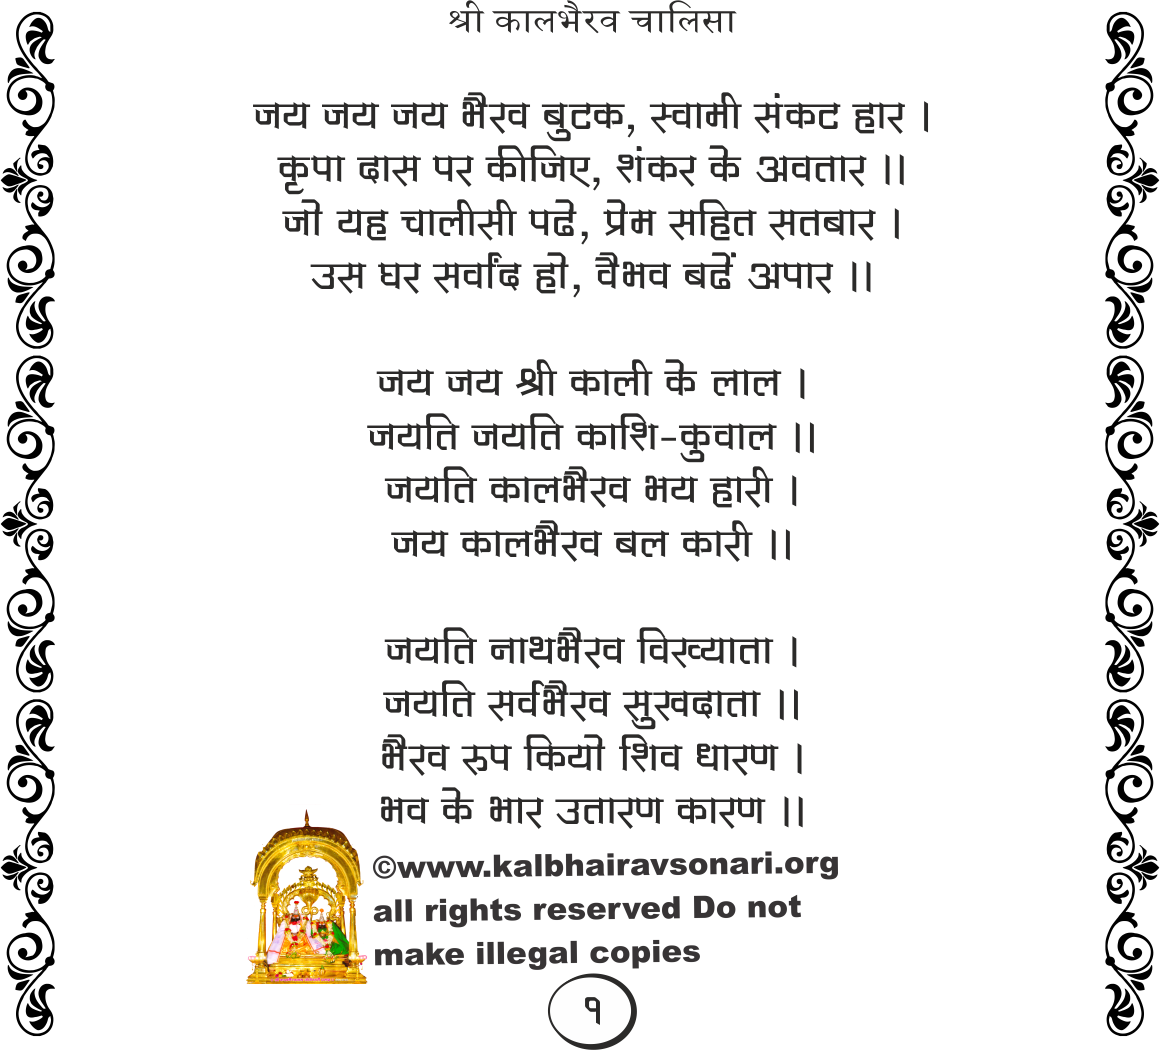 श्री कालभैरव चालिसा
जय जय जय भैरव बुटक, स्वामी संकट हार ।
कृपा दास पर कीजिए, शंकर के अवतार ।।
जो यह चालीसी पढे, प्रेम सहित सतबार ।
उस घर सर्वांद हो, वैभव बढें अपार ।।
जय जय श्री काली के लाल ।
जयति जयति काशि-कुवाल ।।
जयति कालभैरव भय हारी ।
जय कालभैरव बल कारी ।।
जयति नाथभैरव विख्याता ।
जयति सर्वभैरव सुखदाता ।।
भैरव रुप कियो शिव धारण ।
भव के भार उतारण कारण ।।
©www.kalbhairavsonari.org
all rights reserved Do not
make illegal copies
१